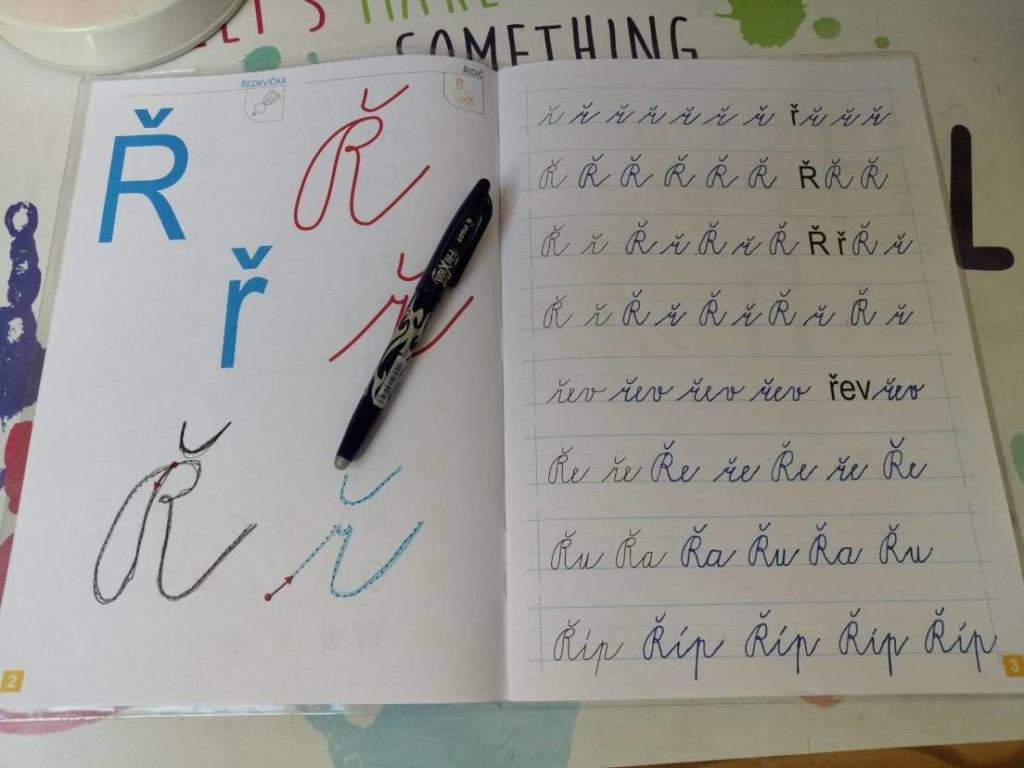 LET'S MAKE
SOMETHING
L
ŘEDKVIČKA
ŘIDIČ
Ř Ř
ř ř
Ř ř
2
PILOT
FRIXION
ř ř ř ř ř ř ř ř ř ř ř
Ř Ř Ř Ř Ř Ř Ř Ř Ř
Ř ř Ř ř Ř ř Ř Ř ř Ř ř
Ř ř Ř ř Ř ř Ř ř Ř ř
řev řev řev řev řev řev
Ře ře Ře ře Ře ře Ře
Řu Řa Řa Řu Řa Řu
Říp Říp Říp Říp Říp
3